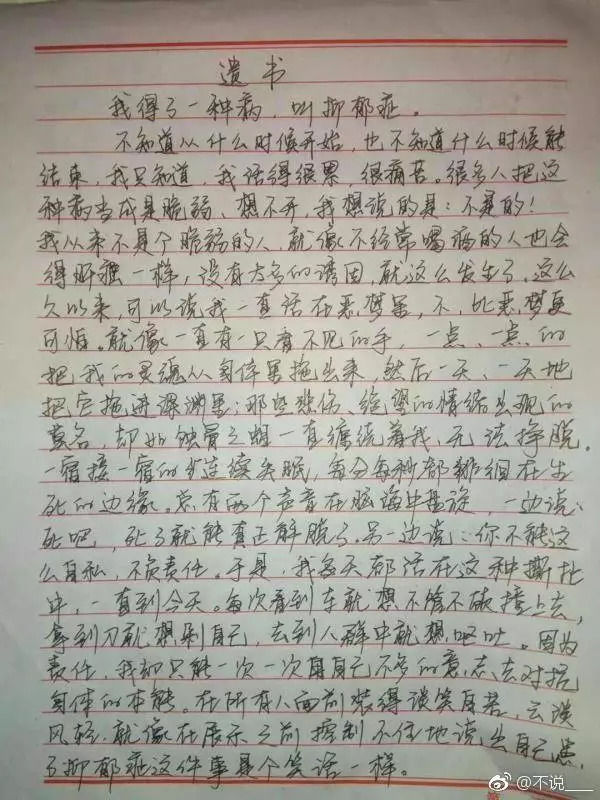 遗书
我得了一种病，叫抑郁症。
不知道从什么时候开始，也不知道什么时候能
结束，我只知道，我活得很累，很痛苦。很多人把这
种病当成是脆弱、想不开，我想说的是：不是的！
我从来不是个脆弱的人，就像不经常喝酒的人也会
得肝癌一样，没有太多的诱因，就这么发生了。这么
久以来，可以说我一直活在恶梦里，不，比恶梦更
可怕。就像一直有一只看不见的手，一点、一点的
把我的灵魂从身体里拖出来，然后一天、一天地
把它拖进深渊里；那些悲伤、绝望的情绪出现的
莫名，却如蚀骨之蛆一直缠绕着我，无法挣脱。
一宿接一宿的连续失眠，每分每秒都徘徊在生
死的边缘。总有两个声音在脑海中盘旋，一边说：
死吧，死了就能真正解脱了。另一边说：你不能这
么自私，不负责任。于是，我多天都活在这种撕扯
中，一直到今天。每次看到车就想不管不顾撞上去，
拿到刀就想剁自己，去到人群中就想呕吐。因为
责任，我却只能一次一次用自己不多的意志去对抗
身体的本能。在所有人面前装得谈笑自若，云淡
风轻，就像在展示之前控制不住地说出自己患
了抑郁症这件事是个笑话一样。
@不说___